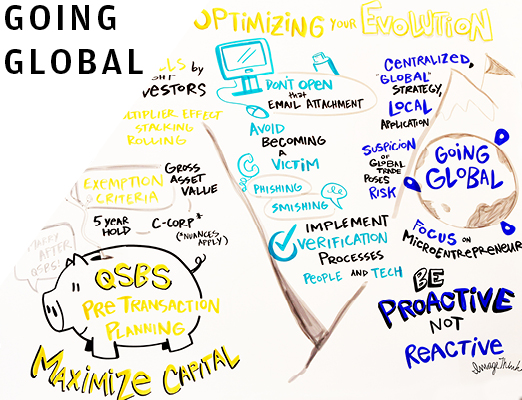 GOING
GLOBAL
OPTIMIZING YOUR EVOLUTION
by
MULTIPLIER EFFECT
STACKING
ROLLING
EXEMPTION
CRITERIA
GROSS
ASSET
VALUE
5 YEAR
HOLD
C-CORP*
(*NUANCES
APPLY)
HAPPY
AFTER
QSBS!
QSBS
PRE TRANSACTION
PLANNING
MAXIMIZE CAPITAL
DON'T OPEN
that
EMAIL ATTACHMENT
AVOID
BECOMING
A
VICTIM
PHISHING
SMISHING
IMPLEMENT
VERIFICATION
PROCESSES
PEOPLE AND TECH
CENTRALIZED,
"GLOBAL"
STRATEGY,
LOCAL
APPLICATION
SUSPICION
OF
GLOBAL TRADE
POSES
RISK
GOING
GLOBAL
FOCUS ON
MICROENTREPRENEUR
BE
PROACTIVE
NOT
REACTIVE
ImageThink